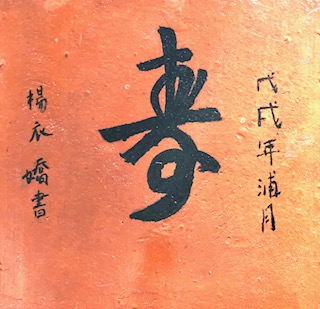 戊戌年浦月
寿
楊衣嬌書